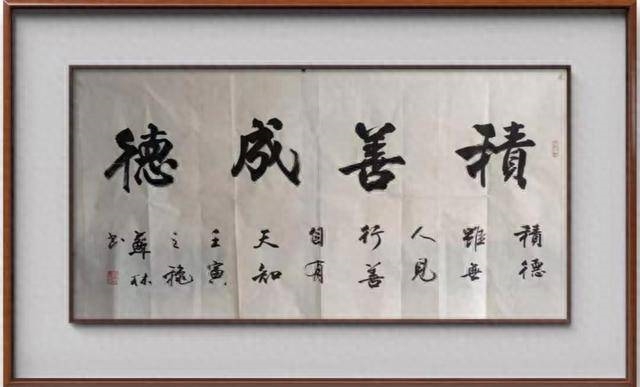 積善成德
積德
雖無
人見
行善
自有
天知
壬寅
之穐
蘇林
书